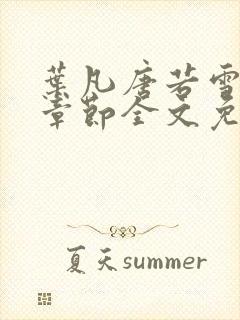 葉凡唐若雪
章節全文免
夏天summer